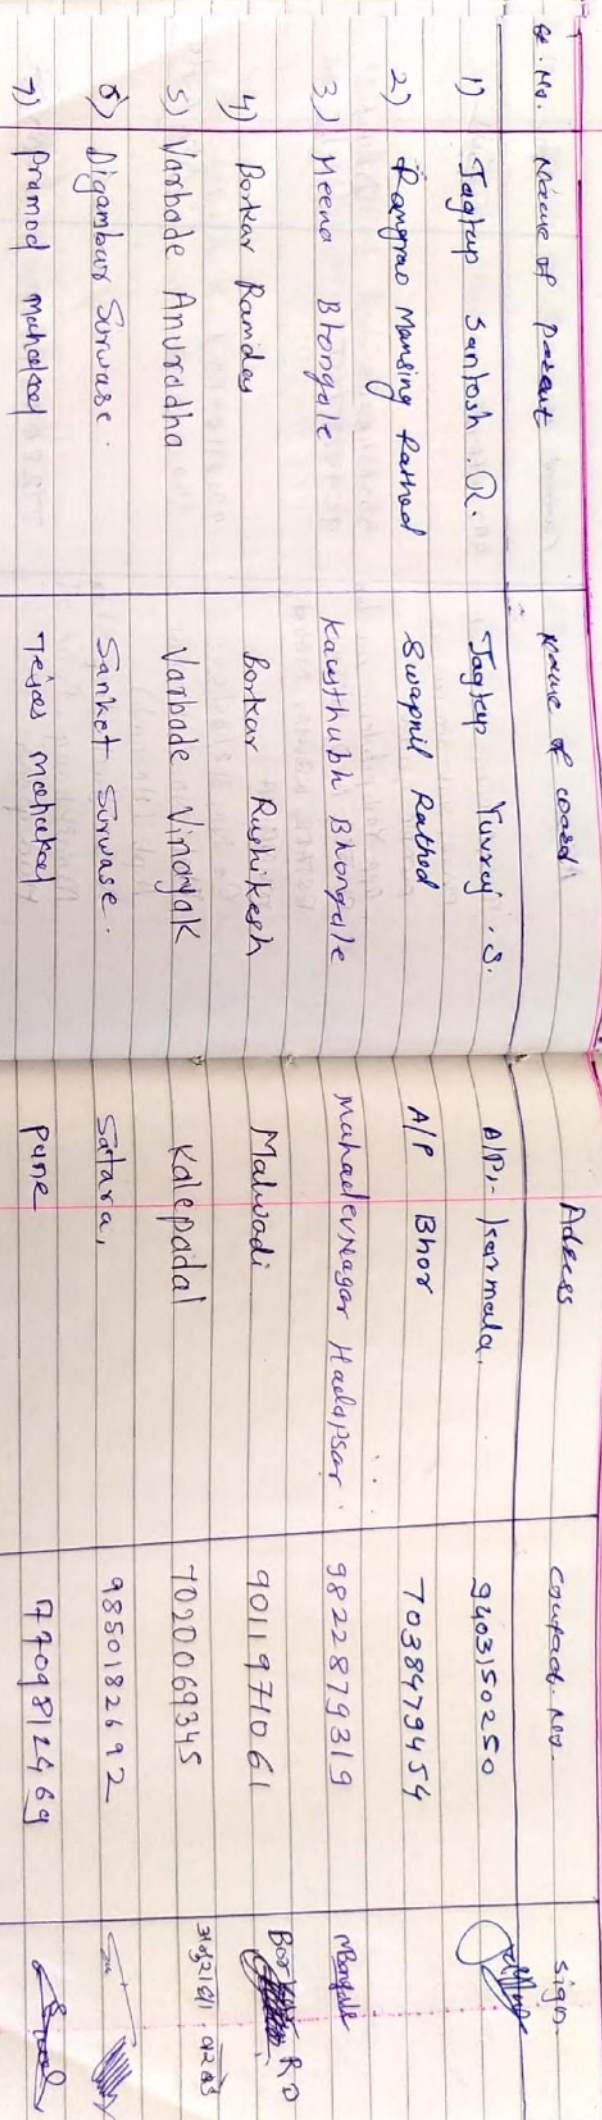 Sr. No. Name of parent Name of ward Adress Contact. No. Sign.
1) Jagtap Santosh . R. Jagtap Yuvraj . S. A/P:- Karmala. 9403150250
2) Rangrao Mansing Rathod Swapnil Rathod A/P Bhor 7038479454
3) Meena Bhongale Kausthubh Bhongale Mahadevnagar Hadapsar. 9822879319
4) Borkar Ramdas Borkar Rushikesh Malwadi 9011971061 RD
5) Varbade Anuradha Varbade Vinayak Kalepadal 7020069345
6) Digambar Surwase. Sanket Surwase. Satara, 9850182692
7) Pramod Mahakal Tejas Mahakal Pune 7709812469